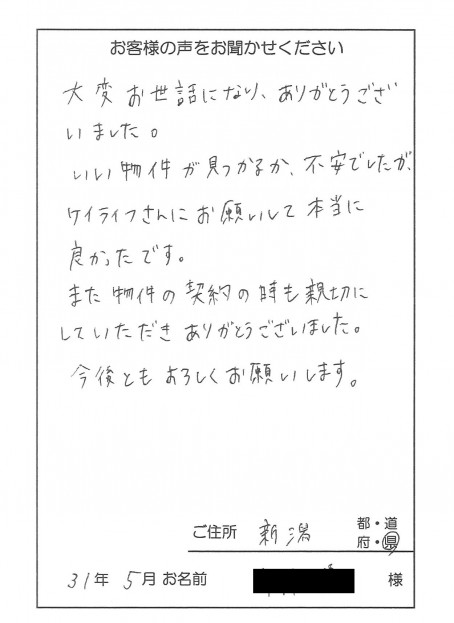 お客様の声をお聞かせください
大変お世話になり、ありがとうござ
いました。
いい物件が見つかるか、不安でしたが、
ケイライフさんにお願いして本当に
良かったです。
また物件の契約の時も親切に
していただきありがとうございました。
今後ともよろしくお願いします。
ご住所 新潟 都・道
府・県
31年 5月 お名前 様